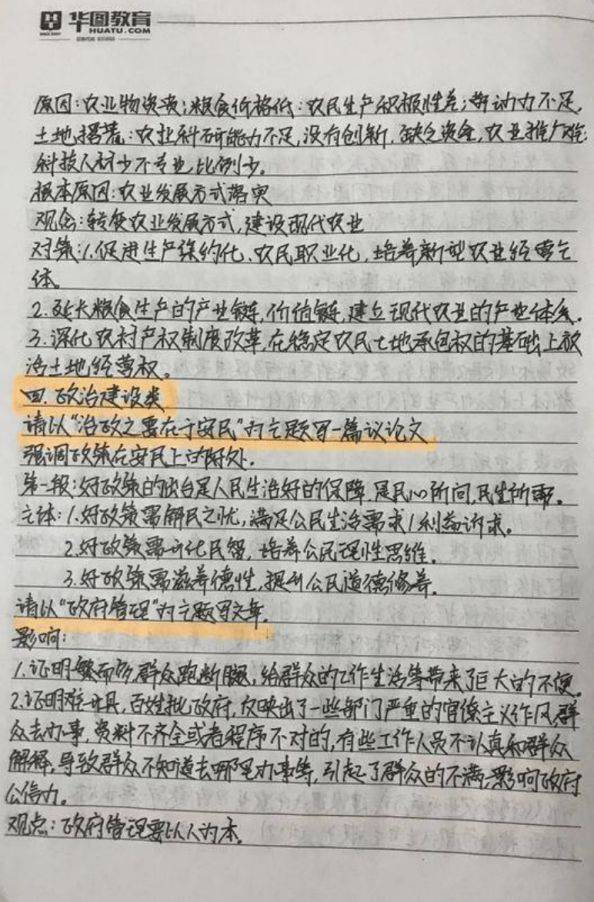 华图教育
HUATU.COM
原因:农业物资贵;粮食价格低:农民生产积极性差;劳动力不足,
土地撂荒:农业科研能力不足,没有创新,缺乏资金,农业推广难;
科技人材少不专业,比例少。
根本原因:农业发展方式落实
观念:转变农业发展方式,建设现代农业
对策:1.促进生产集约化、农民职业化,培养新型农业经营主
体。
2.延长粮食生产的产业链,价值链,建立现代农业的产业体系。
3.深化农村产权制度改革,在稳定农民土地承包权的基础上放
活土地经营权。
四.政治建设类
请以"治政之要在于安民"为主题写一篇议论文
强调政策在安民上的好处。
第一段:好政策的出台是人民生活好的保障,是民心所向,民生所事。
主体:1.好政策需解民之忧,满足公民生活需求/利益诉求。
2.好政策需开化民智,培养公民理性思维。
3.好政策需滋养德性,提升公民道德修养。
请以"政府管理"为主题写文章。
影响:
1.证明繁而多,群众跑断腿,给群众的工作生活等带来了巨大的不便。
2.证明难开具,百姓批政府,反映出了一些部门严重的官僚主义作风,群
众去办事,资料不齐全或者程序不对的,有些工作人员不认真和群众
解释,导致群众不知道去哪里办事等,引起了群众的不满,影响政府
公信力。
观点:政府管理要以人为本.